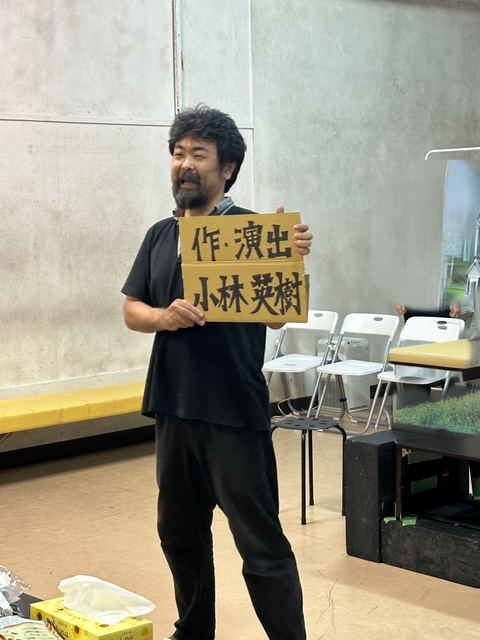 作・演出
小林英樹